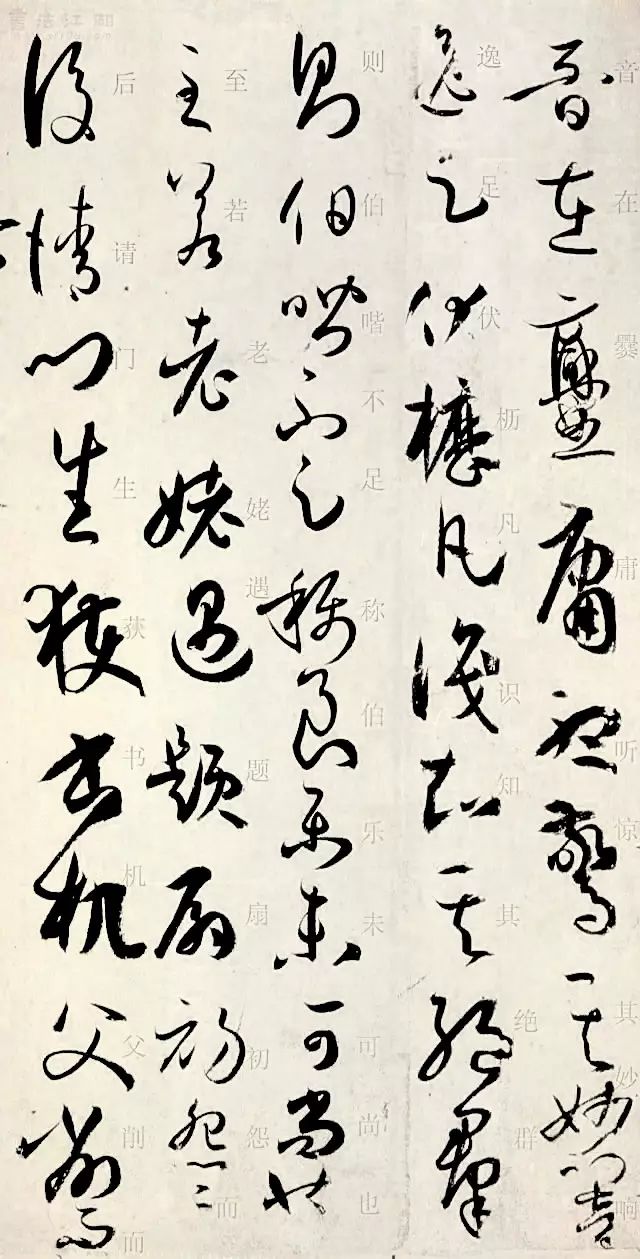 音在爨庸听惊其妙响
音在爨庸聽驚其妙響
逸足伏枥凡识知其绝群
逸足伏櫪凡識知其絕群
则伯喈不足称伯乐未可尚也
則伯喈不足稱良樂未可尚也
至若老姥遇题扇初怨而
至若老姥遇題扇初怨而
后请门生获书机父削而
後請門生獲書机父削而
書法江湖